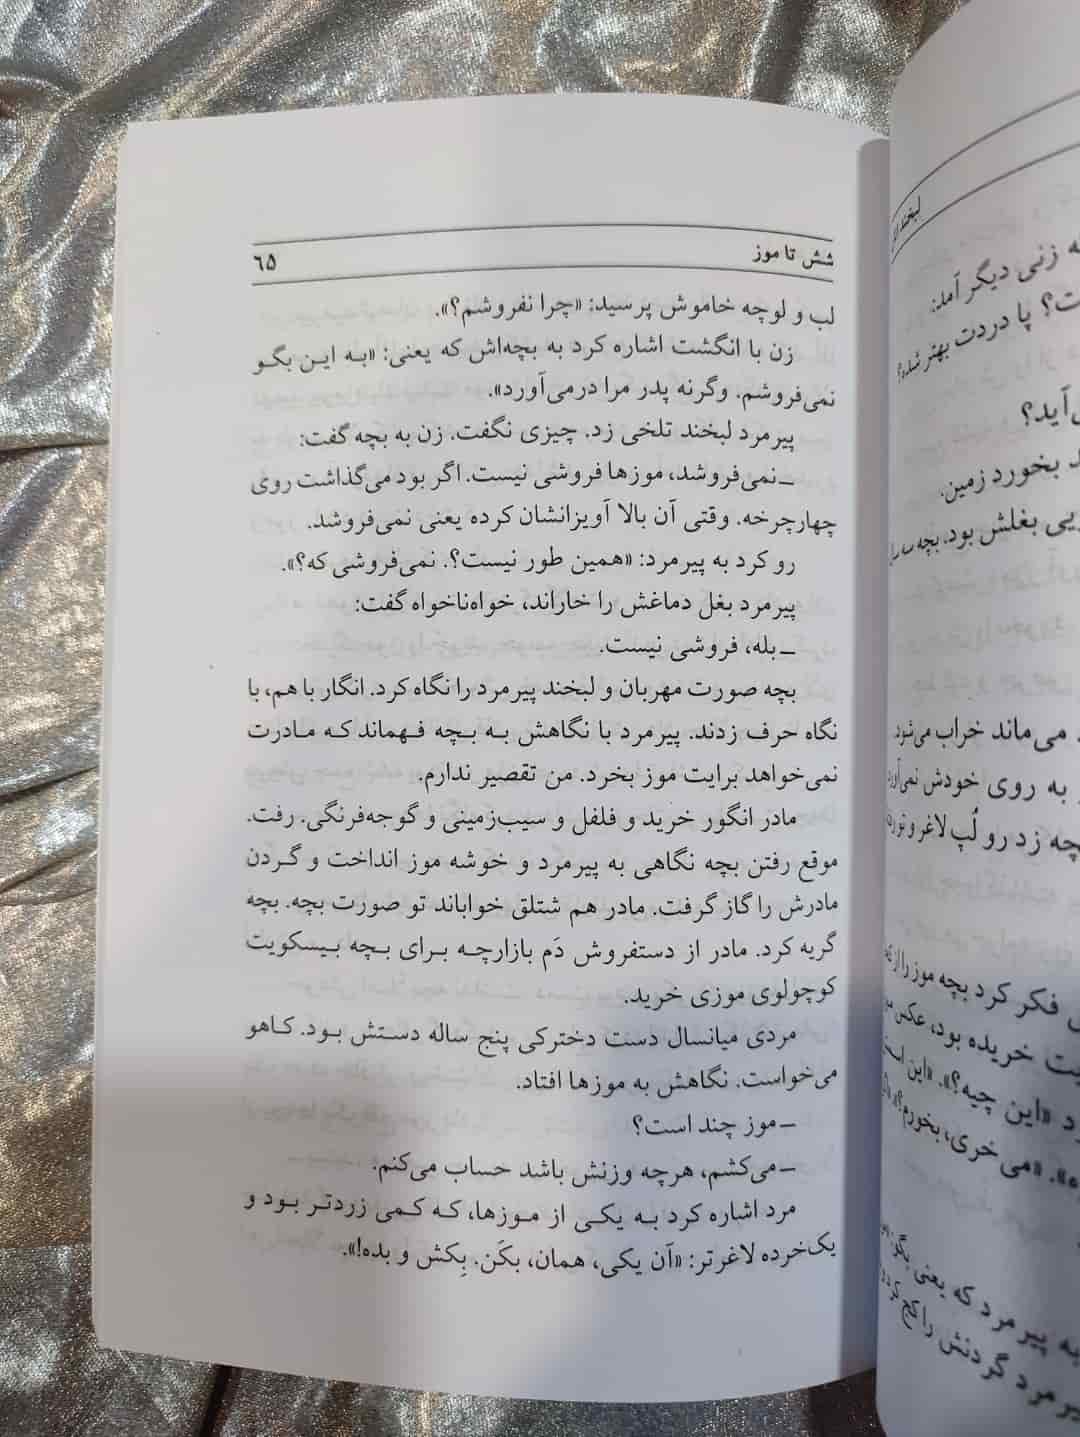 شش تا موز
۶۵
لب و لوچه خاموش پرسید: «چرا نفروشم؟».
زن با انگشت اشاره کرد به بچه‌اش که یعنی: «به این بگو
نمی‌فروشم. وگرنه پدر مرا درمی‌آورد».
پیرمرد لبخند تلخی زد. چیزی نگفت. زن به بچه گفت:
ــ نمی‌فروشد، موزها فروشی نیست. اگر بود می‌گذاشت روی
چهارچرخه. وقتی آن بالا آویزانشان کرده یعنی نمی‌فروشد.
رو کرد به پیرمرد: «همین طور نیست؟. نمی‌فروشی که؟».
پیرمرد بغل دماغش را خاراند، خواه‌ناخواه گفت:
ــ بله، فروشی نیست.
بچه صورت مهربان و لبخند پیرمرد را نگاه کرد. انگار با هم، با
نگاه حرف زدند. پیرمرد با نگاهش به بچه فهماند که مادرت
نمی‌خواهد برایت موز بخرد. من تقصیر ندارم.
مادر انگور خرید و فلفل و سیب‌زمینی و گوجه‌فرنگی. رفت.
موقع رفتن بچه نگاهی به پیرمرد و خوشه موز انداخت و گردن
مادرش را گاز گرفت. مادر هم شتلق خواباند تو صورت بچه. بچه
گریه کرد. مادر از دستفروش دَم بازارچه برای بچه بیسکویت
کوچولوی موزی خرید.
مردی میانسال دست دخترکی پنج ساله دستش بود. کاهو
می‌خواست. نگاهش به موزها افتاد.
ــ موز چند است؟
ــ می‌کشم، هرچه وزنش باشد حساب می‌کنم.
مرد اشاره کرد به یکی از موزها، که کمی زردتر بود و
یک‌خرده لاغرتر: «آن یکی، همان، بکَن. بِکش و بده!».
لبخند
ه زنی دیگر آمد:
ت؟ پا دردت بهتر شده؟
ی‌آید؟
د بخورد زمین.
یی بغلش بود. بچه سه
می‌ماند خراب می‌شود.
به روی خودش
چه زد رو لُپ لاغر و
فکر کرد بچه موز را از
یت خریده بود، عکس
د «این چیه؟». «این
«می‌خری، بخورم؟»
به پیرمرد که یعنی بگو:
یرمرد گردنش را کج کرد